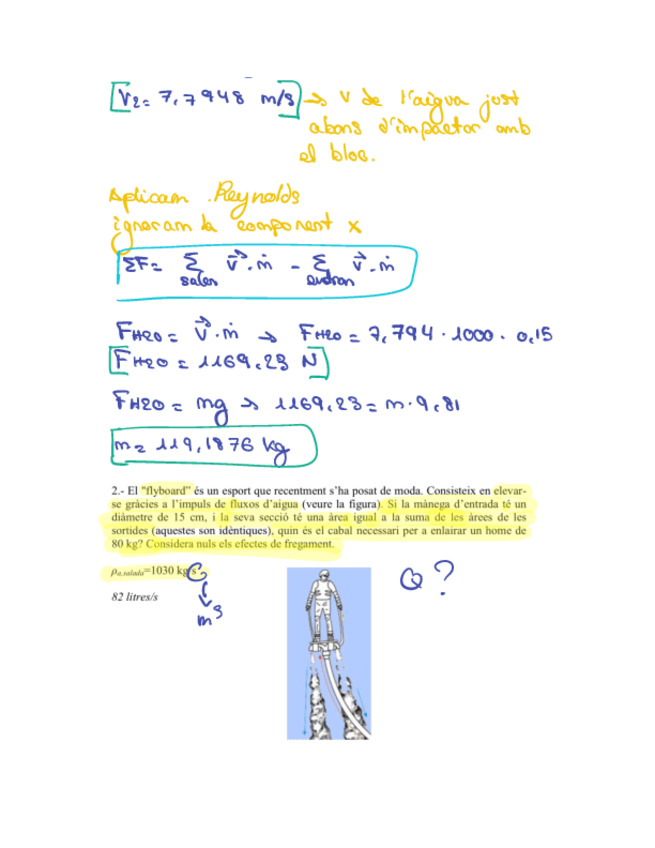 V2= 7,7948 m/s → v de l'aigua just
abans d'impactar amb
el bloc.
Aplicam Reynolds
ignoram la component x
ΣF= Σ v⃗·ṁ - Σ v⃗·ṁ
salen entran
FH2O = v⃗·ṁ → FH2O = 7,794 · 1000 · 0,15
FH2O = 1169,23 N
FH2O = mg → 1169,23 = m·9,81
m= 119,1876 kg
2.- El "flyboard" és un esport que recentment s'ha posat de moda. Consisteix en elevar-
se gràcies a l'impuls de fluxos d'aigua (veure la figura). Si la mànega d'entrada té un
diàmetre de 15 cm, i la seva secció té una àrea igual a la suma de les àrees de les
sortides (aquestes son idèntiques), quin és el cabal necessari per a enlairar un home de
80 kg? Considera nuls els efectes de fregament.
ρa.salada=1030 kg/s
Q?
82 litres/s
m³